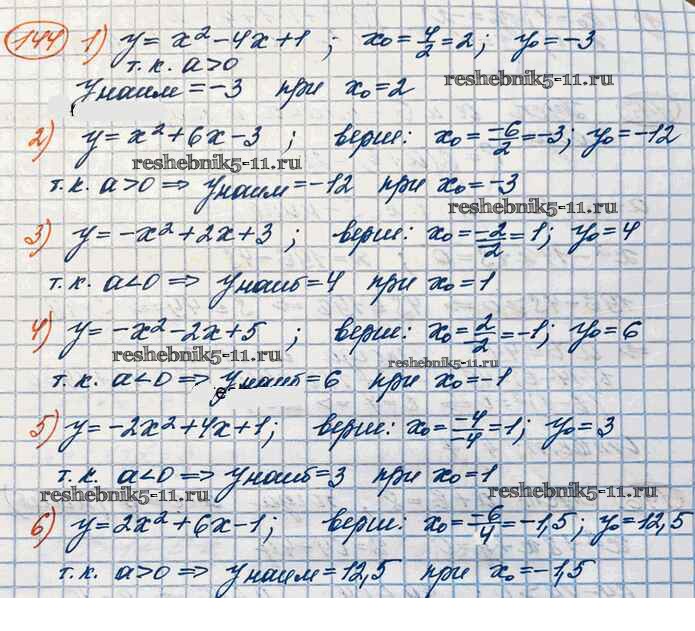 144 1) y = x² - 4x + 1 ; x₀ = 4/2 = 2 ; y₀ = -3
т.к. a > 0
reshebnik5-11.ru
yнаим = -3 при x₀ = 2
2) y = x² + 6x - 3 ; верш: x₀ = -6/2 = -3 ; y₀ = -12
reshebnik5-11.ru
т.к. a > 0 => yнаим = -12 при x₀ = -3
reshebnik5-11.ru
3) y = -x² + 2x + 3 ; верш: x₀ = -2/-2 = 1 ; y₀ = 4
т.к. a < 0 => yнаиб = 4 при x₀ = 1
4) y = -x² - 2x + 5 ; верш: x₀ = 2/-2 = -1 ; y₀ = 6
reshebnik5-11.ru reshebnik5-11.ru
т.к. a < 0 => yнаиб = 6 при x₀ = -1
5) y = -2x² + 4x + 1 ; верш: x₀ = -4/-4 = 1 ; y₀ = 3
т.к. a < 0 => yнаиб = 3 при x₀ = 1
reshebnik5-11.ru reshebnik5-11.ru
6) y = 2x² + 6x - 1 ; верш: x₀ = -6/4 = -1,5 ; y₀ = 12,5
т.к. a > 0 => yнаим = 12,5 при x₀ = -1,5